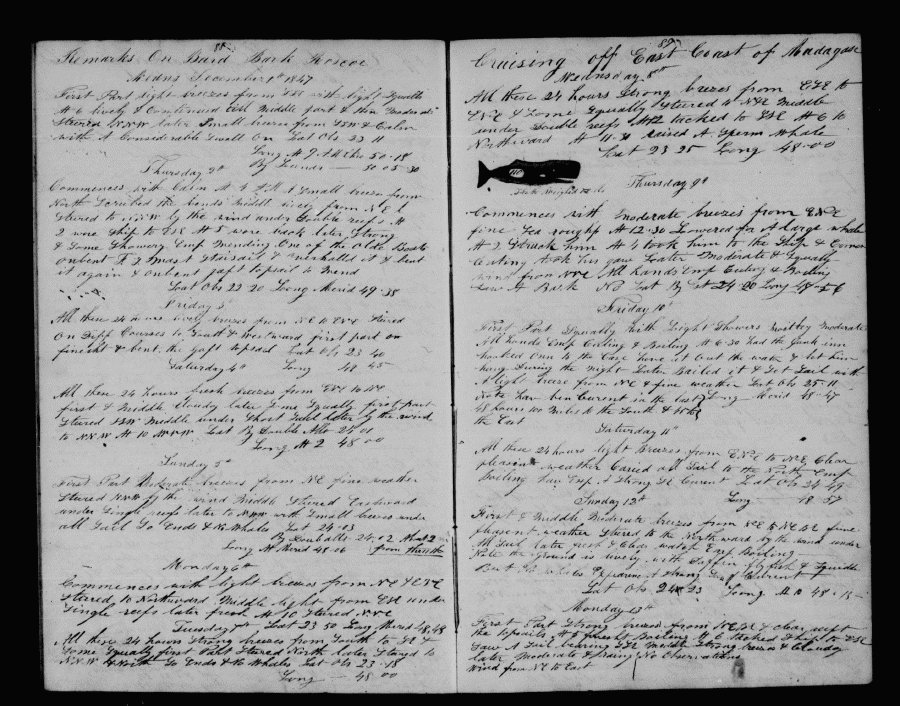 88
Remarks On Board Bark Roscoe
Wedns December 1st 1847
First Part light breezes from ESE with light Squalls
At 6 lively & Continued till Middle part & then Moderate
Steered NNW later Small breeze from SSW & Calm
with A Considerable Swell On Lat Obs 23 11
Long At 9 AM Chro 50-18
By Lunar 50-05-30
Thursday 2d
Commences with Calm At 4 P.M A Small breeze from
North Middle lively from NE
Steered to NNW by the wind under Double reefs At
2 wore Ship to ESE At 5 wore back later Strong
& Some Showery Emp Mending One of the Olde Boats
Unbent Mast Staisail & overhalld it & bent
it again & unbent gaft topsail to Mend
Lat Obs 23 20 Long Merid 49-38
Friday 3d
All these 24 hours lively breezes from NE to ENE Steered
On Diff Courses to South & Westward first part on
fine & bent the gaft topsail Lat Obs 23 40
Saturday 4th Long 48 45
All these 24 hours fresh breezes from ENE to NE
first & Middle Cloudy later Some Squally first part
Steered SSW Middle under Short Sail later by the wind
to NNW At 10 Lat By Double Alts 24-01
Long At 2 48-00
Sunday 5th
First Part Moderate breezes from NE fine weather
Steered NNW by the wind Middle Steered Eastward
under Single reefs later to NNW with Small breeze under
all Sail So Ends & No Whales Lat 24-03
By Doub alts 24-02
Long At Merid 48-06
Monday 6th
Commences with light breezes from NE & ENE
Steered to Northward Middle light from ESE under
Single reefs later fresh At 10 Steered NNE
Tuesday 7th Lat 23 50 Long Merid 48,48
All these 24 hours Strong breezes from South to SE &
Some Squally first Part Steered North later Steered to
NNW & North So Ends & No Whales Lat Obs 23-18
Long 48 00
89
Cruising off East Coast of Madagascar
Wednesday 8th
All these 24 hours Strong breezes from ESE to
ENE & Some Squally Steered to NNE Middle
under Double reefs At 2 tacked to SSE At 6 to
Northward At 11.30 raised A Sperm Whale
Lat 23 25 Long 48-00
Thursday 9th
Commences with Moderate breezes from ENE
fine Sea rough At 12-30 Lowered for A large whale
At 2 Struck him At 4 took him to the Ship & Comm
Cutting took his jaw Later Moderate & Squally
wind from NNE All hands Emp Cutting & Boiling
Saw A Bark NB Lat By 24-20 Long 48-56
Friday 10th
First Part Squally with Light Showers Moderate
All hands Emp Cutting & Boiling At 6-30 had the Junk in
hooked Onn to the Case hove it Out the water & let him
hang During the Night Later Bailed it & Set Sail with
A light breeze from NE & fine weather Lat Obs 25-11
Note Har ben Curent in the last Long Merid 48-47
48 hours 100 Miles to the South &
the East
Saturday 11th
All these 24 hours light breezes from ENE to NNE Clear
pleasant weather Caried all Sail to the North Emp
Boiling Saw A Strong SE Curent Lat Obs 24-49
Sunday 12th Long 48-57
First & Middle Moderate breezes from NE to NNE fine
pleasent weather Steered to the Northward by the wind under
All Sail later fresh & Clear Emp Boiling
Note the ground is lively with flyfish & Squids
But No whales Experience A Strong Curent
Lat Obs 24 23 Long M 48-15
Monday 13th
First Part Strong breezes from NNE & Clear
the topsails At 6 tacked Ship to ESE
Saw A Sail bearing ESE Middle Strong breezes & Cloudy
later Moderate & raining No Observations
wind from NE to East